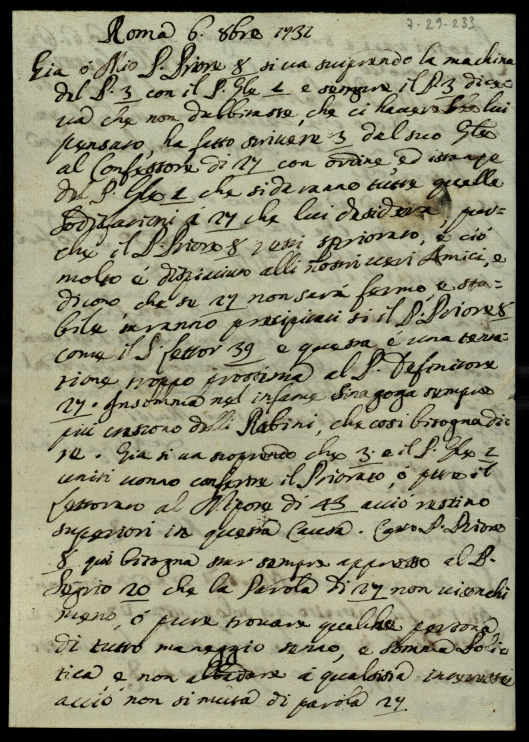 7-29-233
Roma 6. 8bre 1732
Gia ó Mio P. Priore 8 si va scuprendo la machina
del P. 3 con il P. Gle 2 e sempre il P. 3 dice-
va che non dubbitasse, che ci haverebbe lui
pensato, ha fatto scrivere 3 dal suo Gle
al Confessore di 27 con ordine, ed istanze
del P. Gle 2 che si daranno tutte quelle
sodisfazioni a 27 che lui desidera, per-
che il P. Priore 8 resti spriorato, e ció
molto é dispiaciuto alli nostri veri Amici, e
dicono che se 27 non sará fermo, e sta-
bile saranno precipitati si il P. Priore 8
come il P. lettor 39 e questa é una tenta-
zione troppo prossima al P. Definitore
27. Insomma nel infame Sinagoga sempre
piú crescono delli Rabini, che cosi bisogna di-
re. Gia si va scoprendo che 3. e il P. Gle 2
uniti vonno conferire il Priorato, ó pure il
lettorato al Nipote di 43 acció restino
superiori in questa Causa. Caro P. Priore
8, qui bisogna star sempre appresso al P.
20 che la Parola di 27 non
meno, ó pure trovare qualche persona
di tutto maneggio senno, e somma Poli-
tica e non abbadare á qualsisia interesse
acció non si muta di parola 27